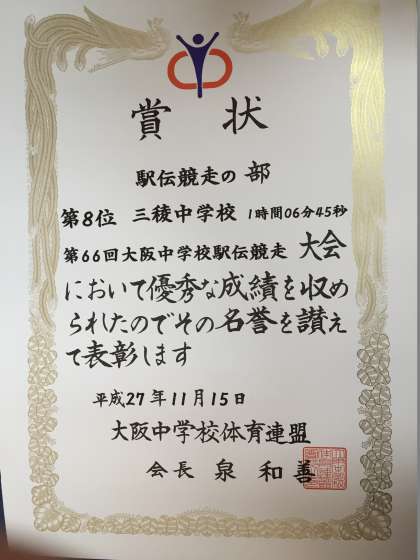 賞状
駅伝競走の部
第8位 三稜中学校 1時間06分45秒
第66回大阪中学校駅伝競走 大会
において優秀な成績を収め
られたのでその名誉を讃え
て表彰します
平成27年11月15日
大阪中学校体育連盟
会長 泉 和善